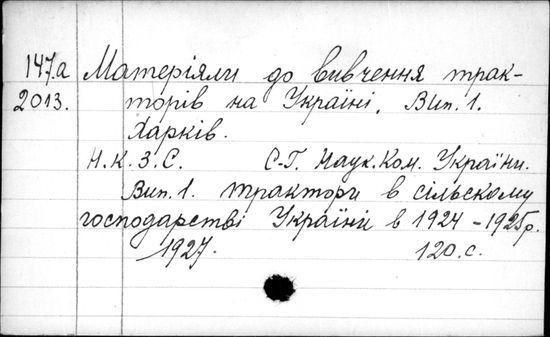 147.а Матеріяли до вивчення трак-
2013. торів на Україні. Вип. 1.
Харків.
Н.К.З.С. С-Г. Наук.Ком. України.
Вип. 1. Трактори в сільскому
господарстві України в 1924-1925р.
1927. 120.с.